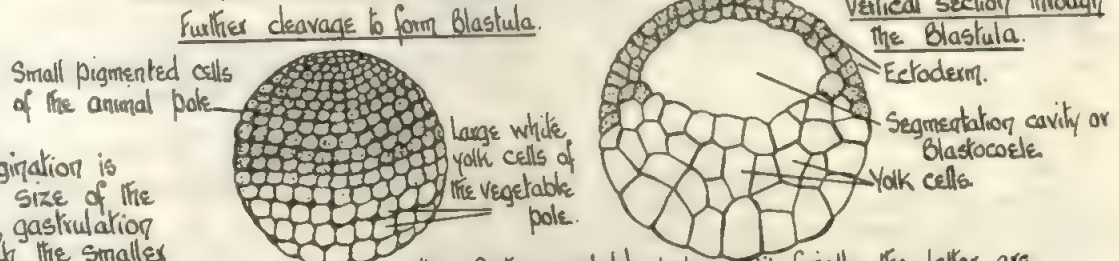 Further cleavage to form Blastula.
Vertical section through
the Blastula.
Small pigmented cells
of the animal pole
Ectoderm.
Large white
yolk cells of
the vegetable
pole.
Segmentation cavity or
Blastocoele.
Yolk cells.
gination is
size of the
gastrulation
the smaller
the latter are